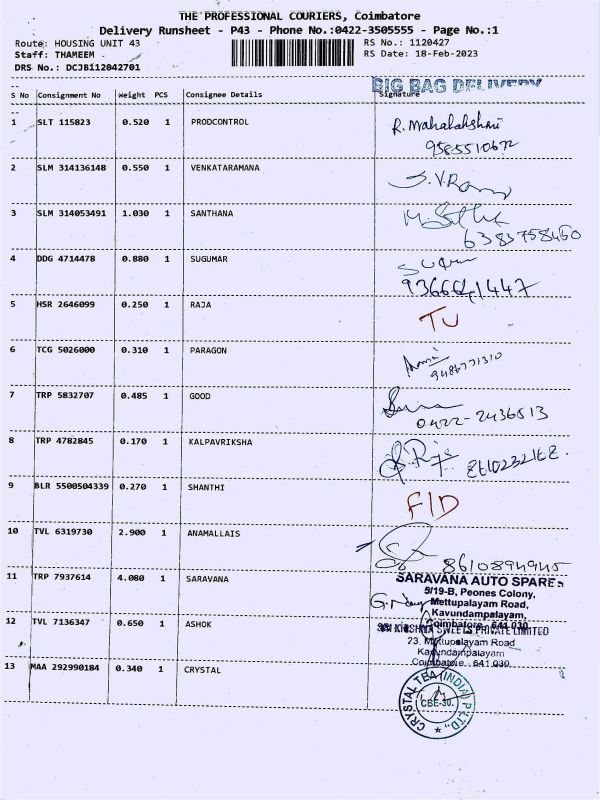 THE PROFESSIONAL COURIERS, Coimbatore
Delivery Runsheet - P43 - Phone No.:0422-3505555 - Page No.:1
Route: HOUSING UNIT 43 RS No.: 1120427
Staff: THAMEEM - RS Date: 18-Feb-2023
DRS No.: DCJBi12042701
BIG BAG DELIVERY
S No Consignment No Weight PCS Consignee Details Signature
1 SLT 115823 0.520 1 PRODCONTROL R. Mahalakshmi
2 SLM 314136148 0.550 1 VENKATARAMANA
3 SLM 314053491 1.030 1 SANTHANA
6383758460
4 DDG 4714478 0.880 1 SUGUMAR
5 HSR 2646099 0.250 1 RAJA TU
6 TCG 5026000 0.310 1 PARAGON
9486771310
7 TRP 5832707 0.485 1 GOOD
0422-2436513
8 TRP 4782845 0.170 1 KALPAVRIKSHA
9 BLR 5500504339 0.270 1 SHANTHI F/D
10 TVL 6319730 2.900 1 ANAMALLAIS
8610894945
11 TRP 7937614 4.080 1 SARAVANA SARAVANA AUTO SPARES
5/19-B, Peones Colony,
Mettupalayam Road,
Kavundampalayam,
Coimbatore - 641 030
12 TVL 7136347 0.650 1 ASHOK SRI KRISHNA SWEETS PRIVATE LIMITED
73, Mettupalayam Road
Kavundampalayam
Coimbatore - 641 030
13 MAA 292990184 0.340 1 CRYSTAL CRYSTAL TEA (INDIA) P LTD.,
CBE-30.